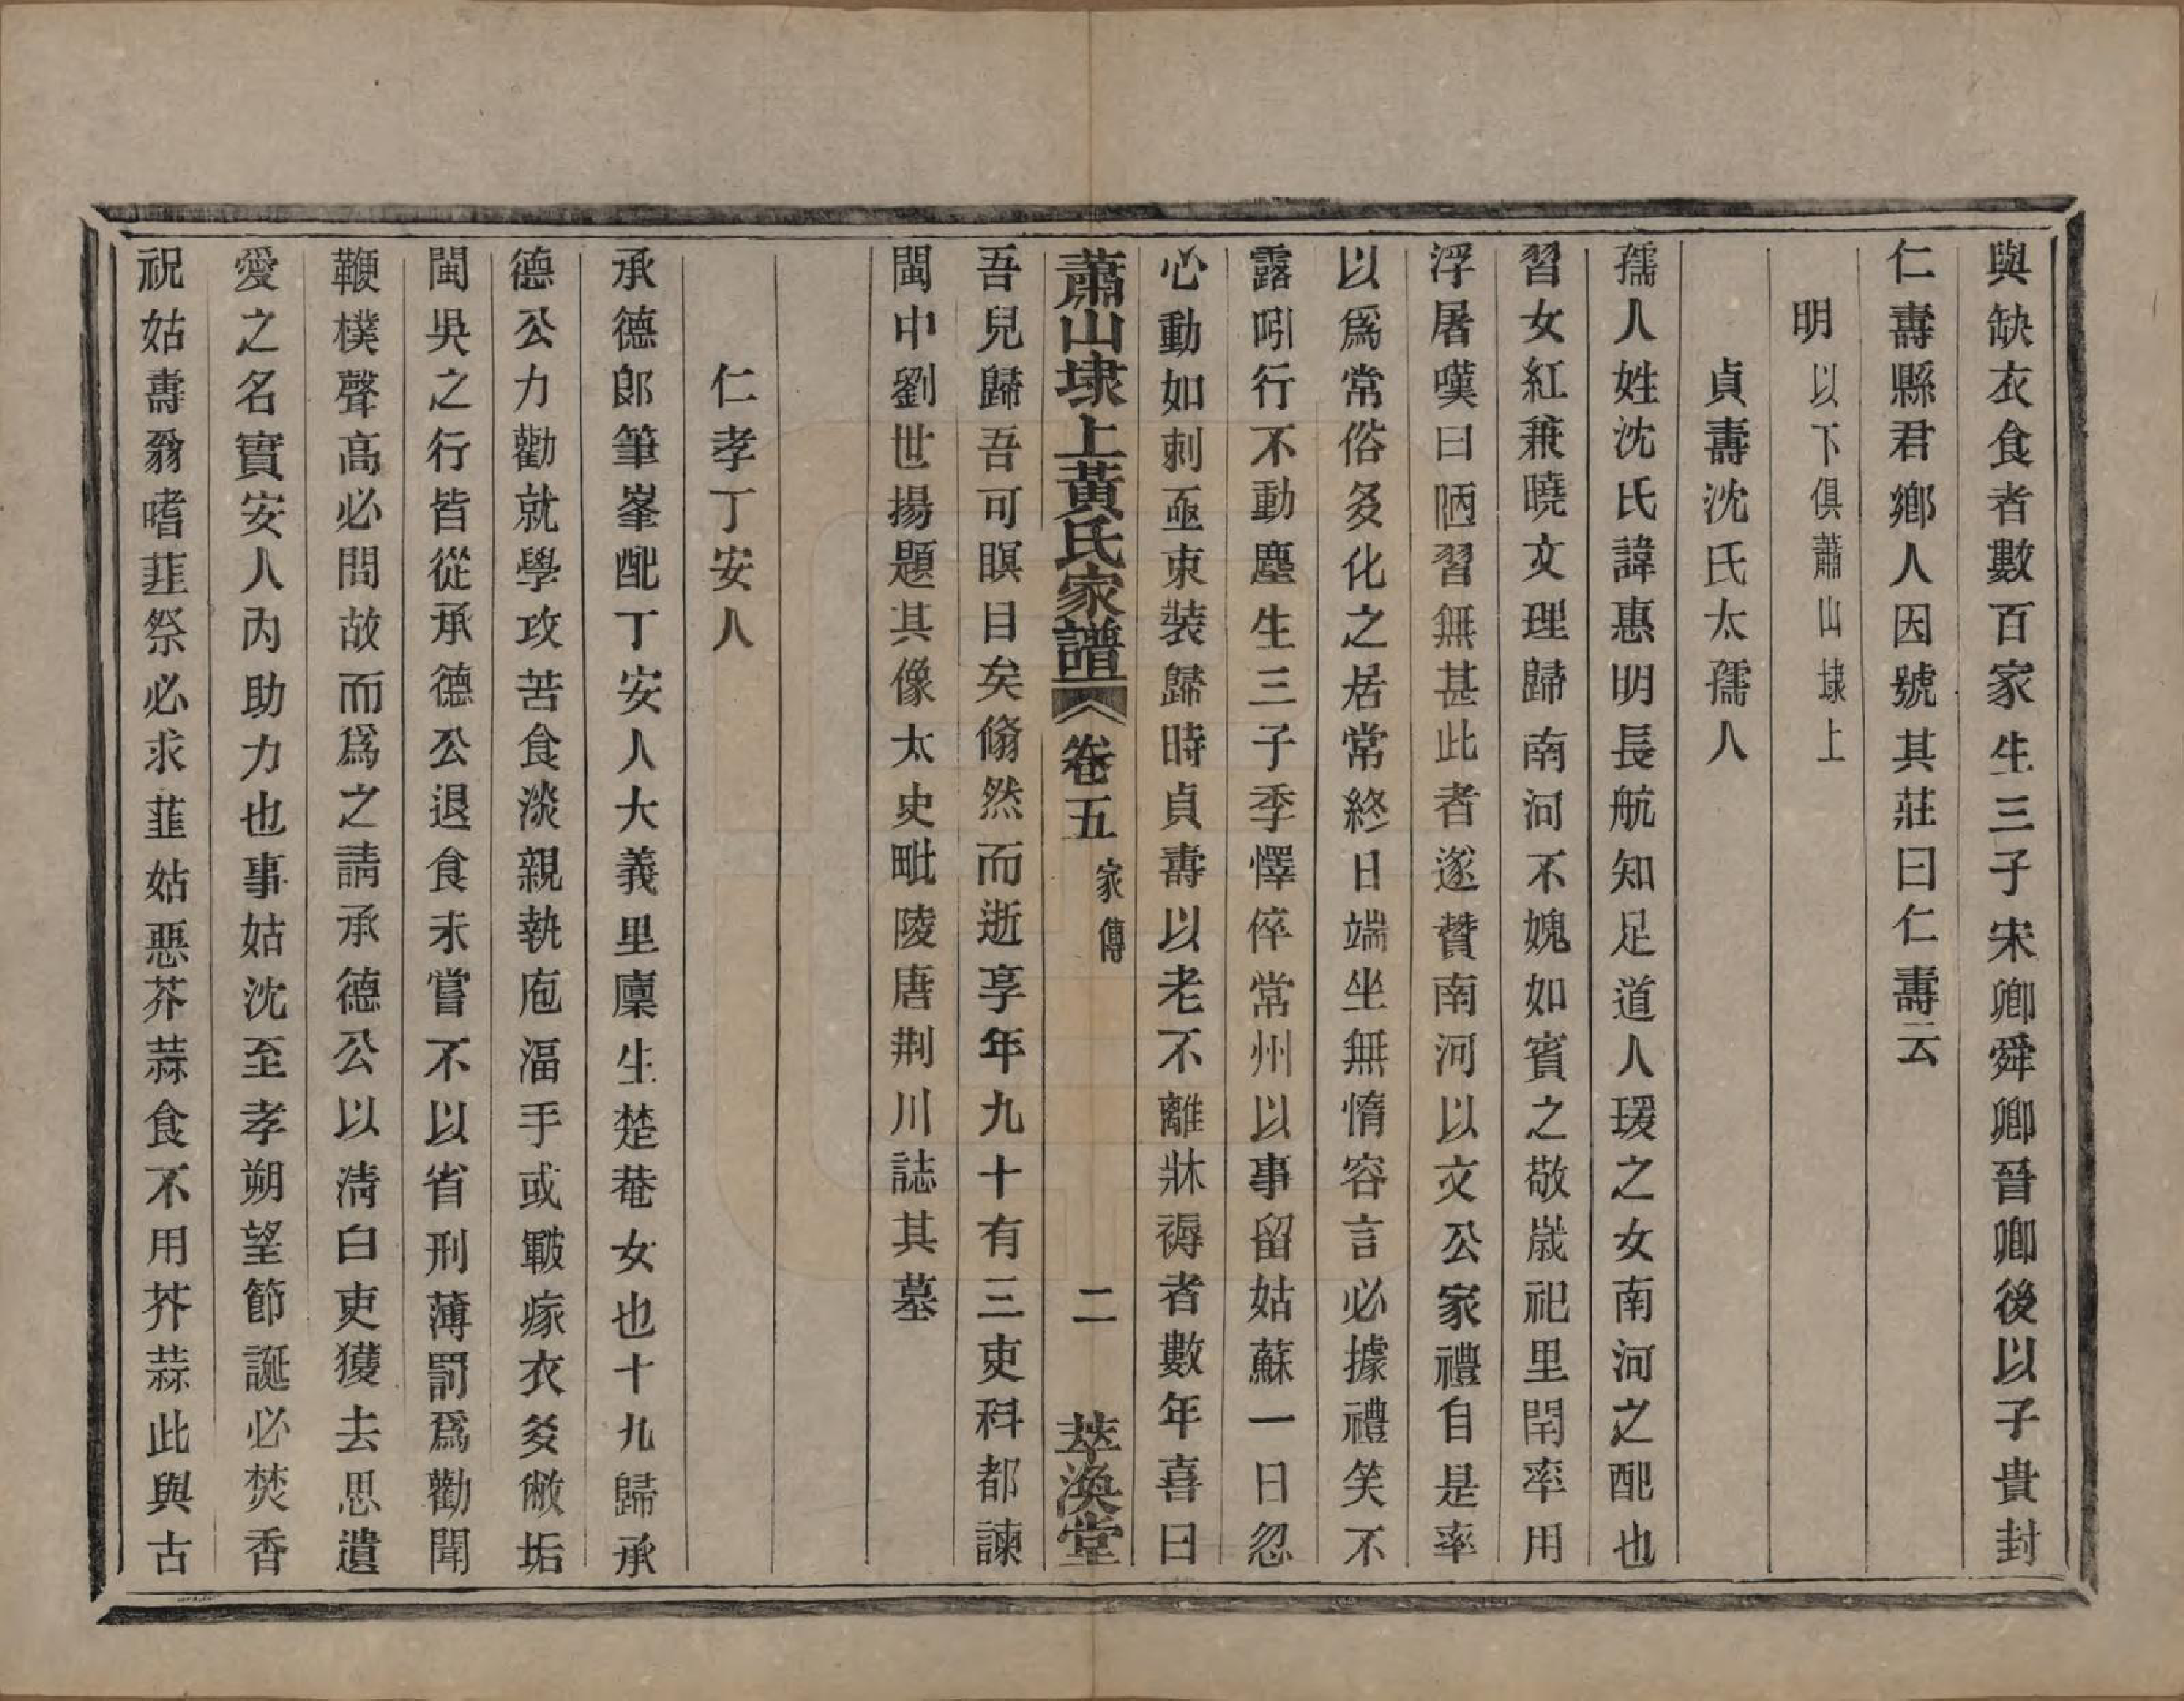 與缺衣食者數百家生三子宋卿舜卿晉卿後以子貴封
仁壽縣君鄉人因號其莊曰仁壽云
明以下俱蕭山埭上
貞壽沈氏太孺人
孺人姓沈氏諱惠明長航知足道人瑗之女南河之配也
習女紅兼曉文理歸南河不媿如賓之敬歲祀里閈率用
浮屠嘆曰陋習無甚此者遂贊南河以文公家禮自是率
以爲常俗多化之居常終日端坐無惰容言必據禮笑不
露吲行不動塵生三子季懌倅常州以事留姑蘇一日忽
心動如刺亟束裝歸時貞壽以老不離牀褥者數年喜曰
蕭山埭上黃氏家譜 卷五 家傳 二 萃渙堂
吾兒歸吾可瞑目矣翛然而逝享年九十有三吏科都諫
閩中劉世揚題其像太史毗陵唐荆川誌其墓
仁孝丁安人
承德郎筆峯配丁安人大義里廩生楚菴女也十九歸承
德公力勸就學攻苦食淡親執庖湢手或皸瘃衣多敝垢
閩吳之行皆從承德公退食未嘗不以省刑薄罰爲勸聞
鞭樸聲高必問故而爲之請承德公以清白吏獲去思遺
愛之名實安人內助力也事姑沈至孝朔望節誕必焚香
祝姑壽翁嗜韮祭必求韮姑惡芥蒜食不用芥蒜此與古